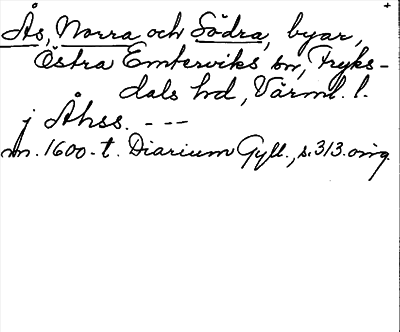 Ås, Norra och Södra, byar,
Östra Emterviks sn, Fryks-
dals hd, Värml. l.
j Åhss. ---
m. 1600-t. Diarium Gyll., s. 313. orig.